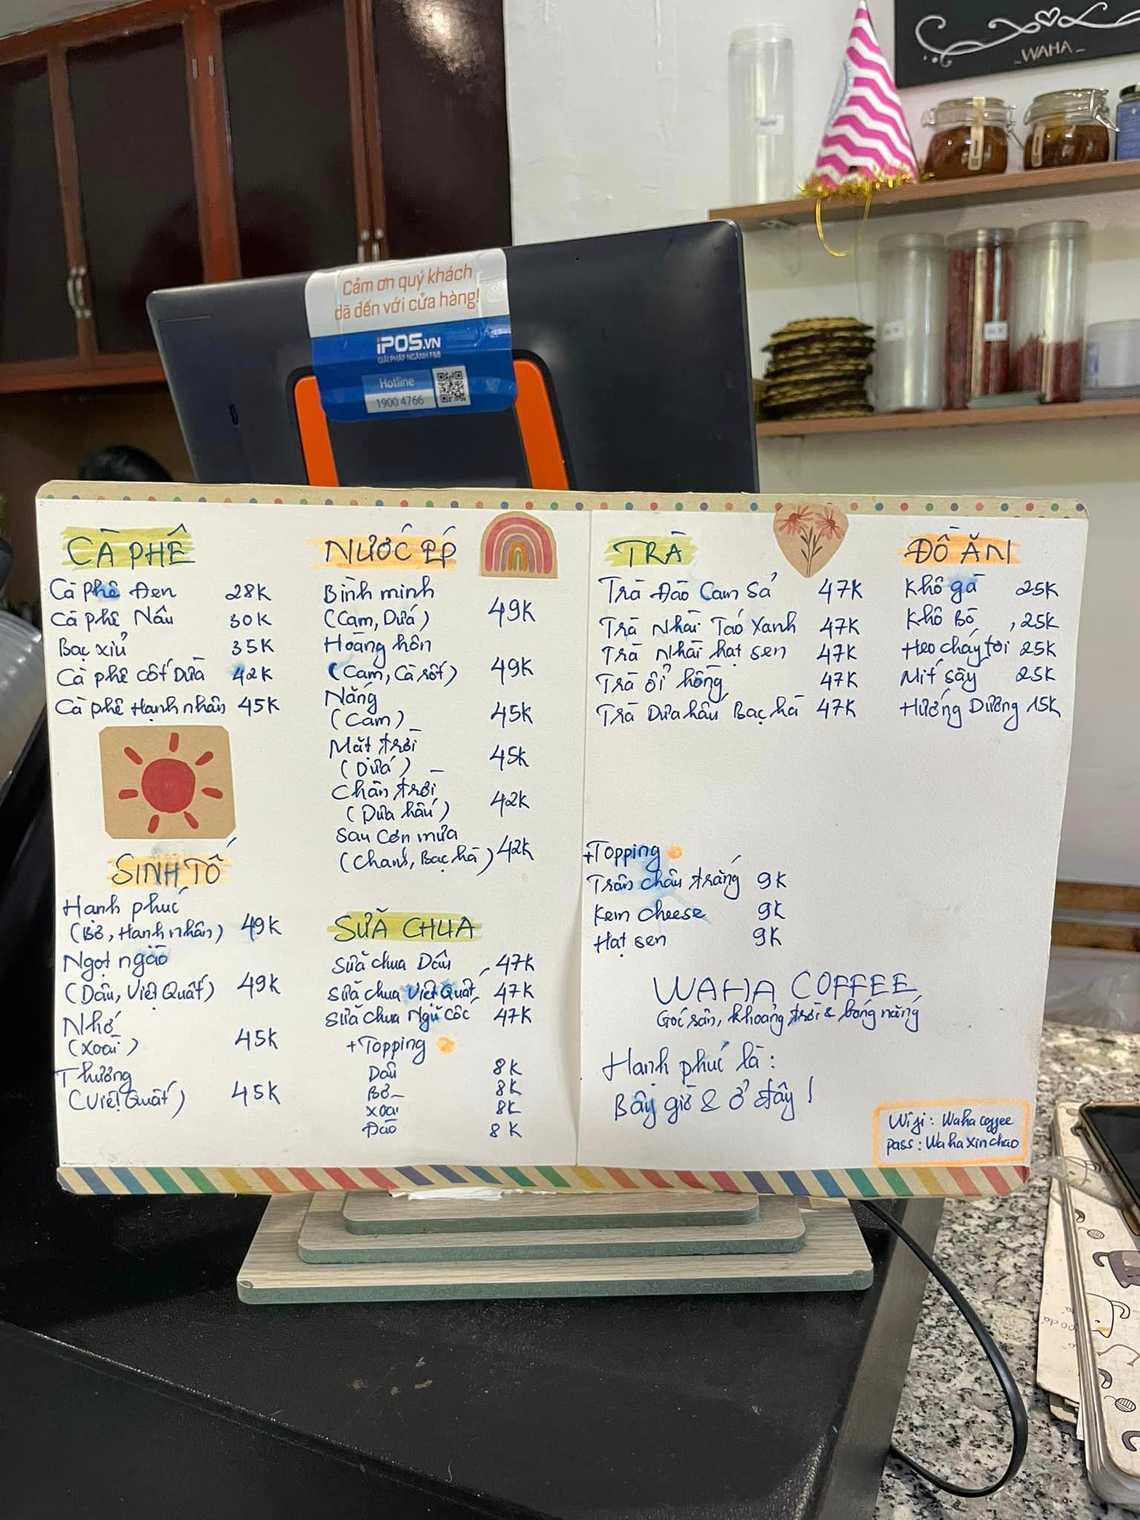 WAHA
Cảm ơn quý khách
đã đến với cửa hàng!
iPOS.VN
GIẢI PHÁP NGÀNH F&B
Hotline
1900 4766
CÀ PHÊ
Cà phê Đen 28K
Cà phê Nâu 30K
Bạc xỉu 35K
Cà phê cốt Dừa 42K
Cà phê Hạnh nhân 45K
SINH TỐ
Hạnh phúc
(Bơ, Hạnh nhân) 49K
Ngọt ngào
(Dâu, Việt Quất) 49K
Nhớ
(Xoài) 45K
Thương
(Việt Quất) 45K
NƯỚC ÉP
Bình minh
(Cam, Dứa) 49K
Hoàng hôn
(Cam, Cà rốt) 49K
Nắng
(Cam) 45K
Mặt trời
(Dứa) 45K
Chân trời
(Dưa hấu) 42K
Sau cơn mưa
(Chanh, Bạc hà) 42K
SỮA CHUA
Sữa chua Dâu 47K
Sữa chua Việt Quất 47K
Sữa chua Ngũ cốc 47K
+Topping
Dâu 8K
Bơ 8K
Xoài 8K
Đào 8K
TRÀ
Trà Đào Cam Sả 47K
Trà Nhài Táo Xanh 47K
Trà Nhài hạt sen 47K
Trà ổi hồng 47K
Trà Dưa hấu Bạc hà 47K
ĐỒ ĂN
Khô gà 25K
Khô Bò 25K
Heo cháy tỏi 25K
Mít sấy 25K
Hướng Dương 15K
+Topping
Trân châu trắng 9K
Kem cheese 9K
Hạt sen 9K
WAHA COFFEE
Góc sân, khoảng trời & bóng nắng
Hạnh phúc là:
Bây giờ & ở đây!
Wifi: Waha coffee
pass: Waha xin chao